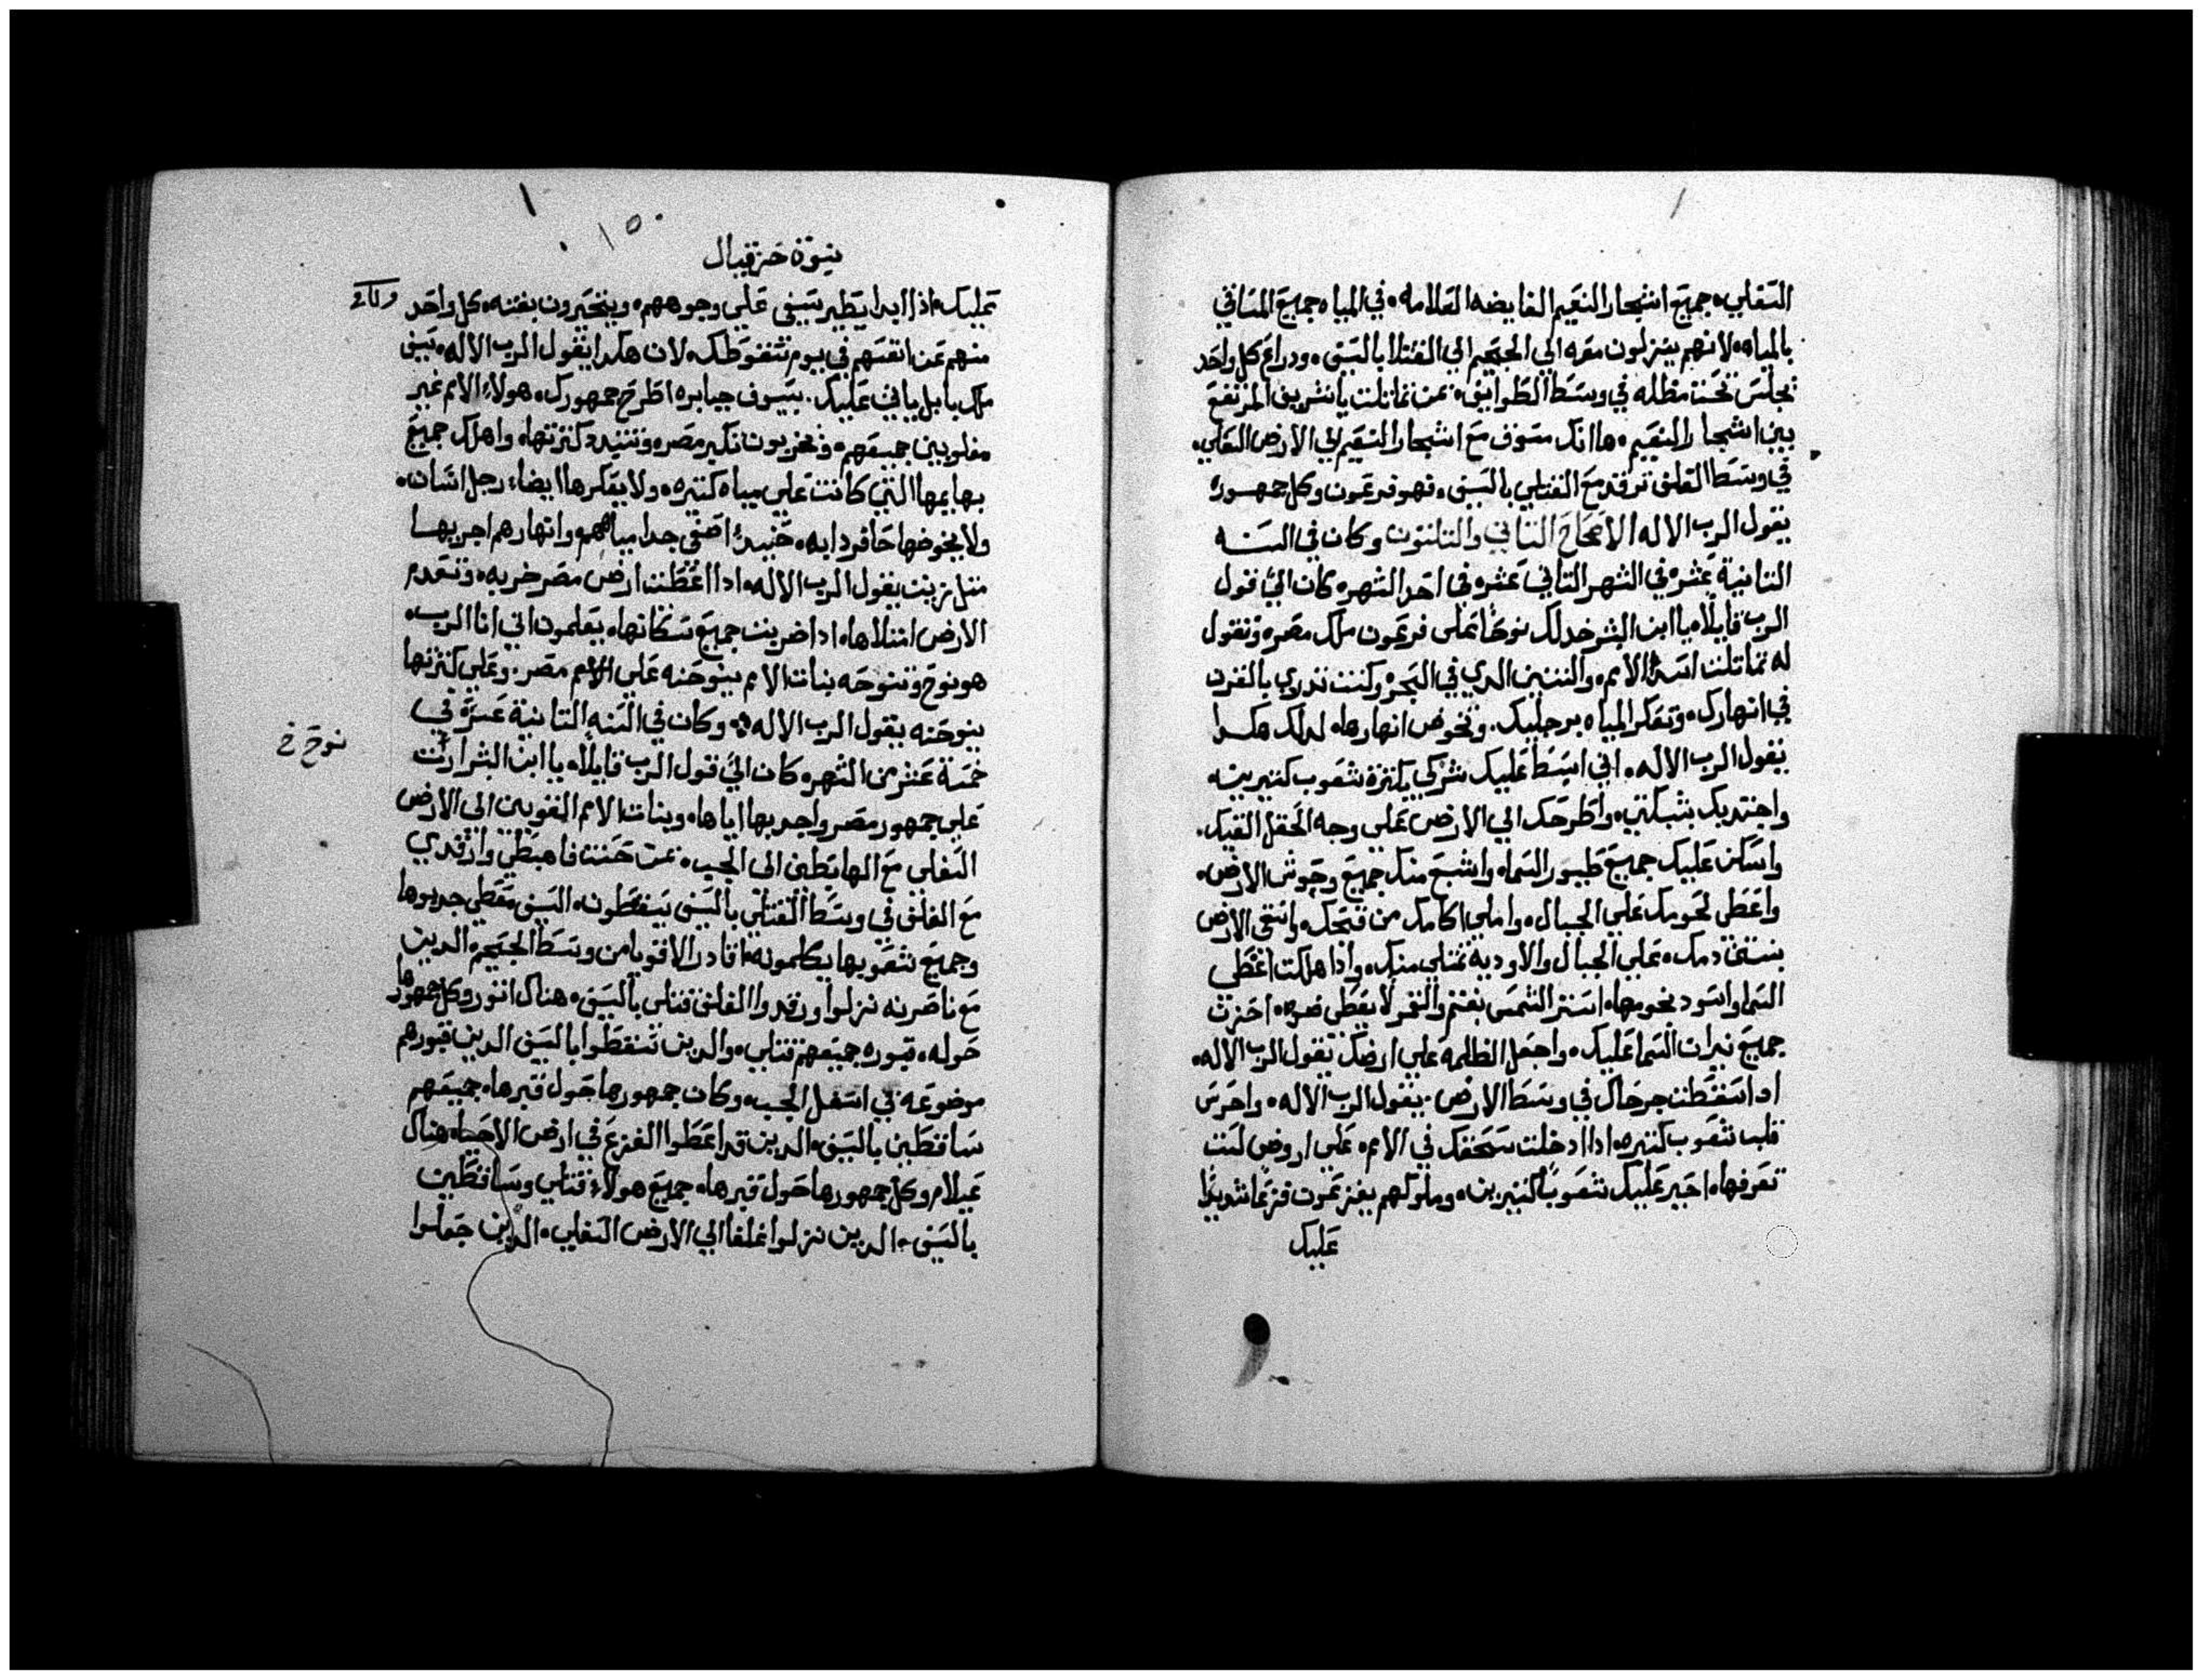 السفلي، جميع اشجار النعيم الفايضه العلامه، في المياه جميع المساقي
بالمياه، لانهم ينزلون معه الي الجحيم الي القتلا بالسيف، ودراع كل واحد
تجلس تحت مظله في وسط الطوايف، بمن تماتلت يا شريف المرتفع
بين اشجار النعيم، ها انك مسوف مع اشجار النعيم الي الارض السفلي،
في وسط الغلف ترقد مع القتلي بالسيف، فهو فرعون وكل جمهوره
يقول الرب الاله الاصحاح التاني والتلتون وكان في السنه
التانية عشره في الشهر التاني عشره في احد الشهره كان اليَّ قول
الرب قايلاً، يا ابن البشر خد لك نوحًا على فرعون ملك مصر، وتقول
له تماتلت اسد الامم، والتنين الدي في البحر، وكنت تدري بالقرن
في انهارك، وتعكر المياه برجليك. وتخوض انهارها، لدلك هكدا
يقول الرب الاله، اني ابسط عليك شركي بكترة شعوب كتيرين،
واجتديك بشبكتي، واطرحك الي الارض على وجه الحقل القيك.
واسكن عليك جميع طيور السما، واشبع منك جميع وحوش الارض،
واعطي لحومك علي الجبال، واملي اكامك من قيحك، واسقي الارض
بنتن دمك، علي الجبال والاوديه تمتلي منك، وادا هلكت اغطي
السما واسود نجومها، استر الشمس بغتم والقمر لا يعطي ضوه، احزن
جميع نيران السما عليك، واجعل الظلمه علي ارضك يقول الرب الاله،
ادا سقطت جرحاك في وسط الارض. يقول الرب الاله، واحرس
قلب شعوب كتيره، ادا ادخلت سحقك في الامم، علي اروض لست
تعرفها، احير عليك شعوبًا كتيرين، وملوكهم يفزعون فزعًا شديدًا
عليك
نبوة حزقيال
عليك، اذا ابدا يطير سيفي علي وجوههم، ويتحيرون بغته، كل واحد
منهم عن انفسهم في يوم سقوطك، لان هكدا يقول الرب الاله، سيف
ملك بابل ياتي عليك. بسيوف جبابره اطرح جمهورك، هولاء الامم غير
مغلوبين جميعهم، وتخربون تكبر مصر، وتتبدد كترتها، واهلك جميع
بهايمها التي كانت علي مياه كتيره، ولا يعكرها ايضاء رجل انسان،
ولا يخوضها حافر دابه، حينيدٍ اصفي جدا مياههم، وانهارهم اجريها
متل زيت يقول الرب الاله، ادا اعطيت ارض مصر خربه، وتعدم
الارض امتلاها، ادا ضربت جميع سكانها، يعلمون اني انا الرب،
هو نوح وتنوحه بنات الامم ينوحنه علي مصر، وعلي كترتها
ينوحنه يقول الرب الاله، وكان في السنه التانية عشرة في
خمسة عشر من الشهر، كان اليَّ قول الرب قايلاً، يا ابن البشر ارت
علي جمهور مصر واجدبها اياها، وبنات الامم القويين الي الارض
السفلي مع الهابطين الي الجب، عن حسنت فاهبطي وارقدي
مع الغلف في وسط القتلي بالسيف يسقطون، السيف معطي جدبوها
وجميع شعوبها يكلمونه اقادر الاقويا من وسط الجحيم، الدين
مع ناصريه نزلوا ورقدوا الغلف قتلى بالسيف، هناك اتور وكل جمهورها
حوله، قبوره جميعهم قتلي، والدين سقطوا بالسيف الدين قبورهم
موضوعه في اسفل الجب، وكان جمهورها حول قبرها، جميعهم
ساقطين بالسيف، الدين قد اعطوا الفزع في ارض الاحيا، هناك
عيلام وكل جمهورها حول قبرها، جميع هولاء قتلي وساقطين
بالسيف، الدين نزلوا غلفا الي الارض السفلي، الدين جعلوا
نوح خ